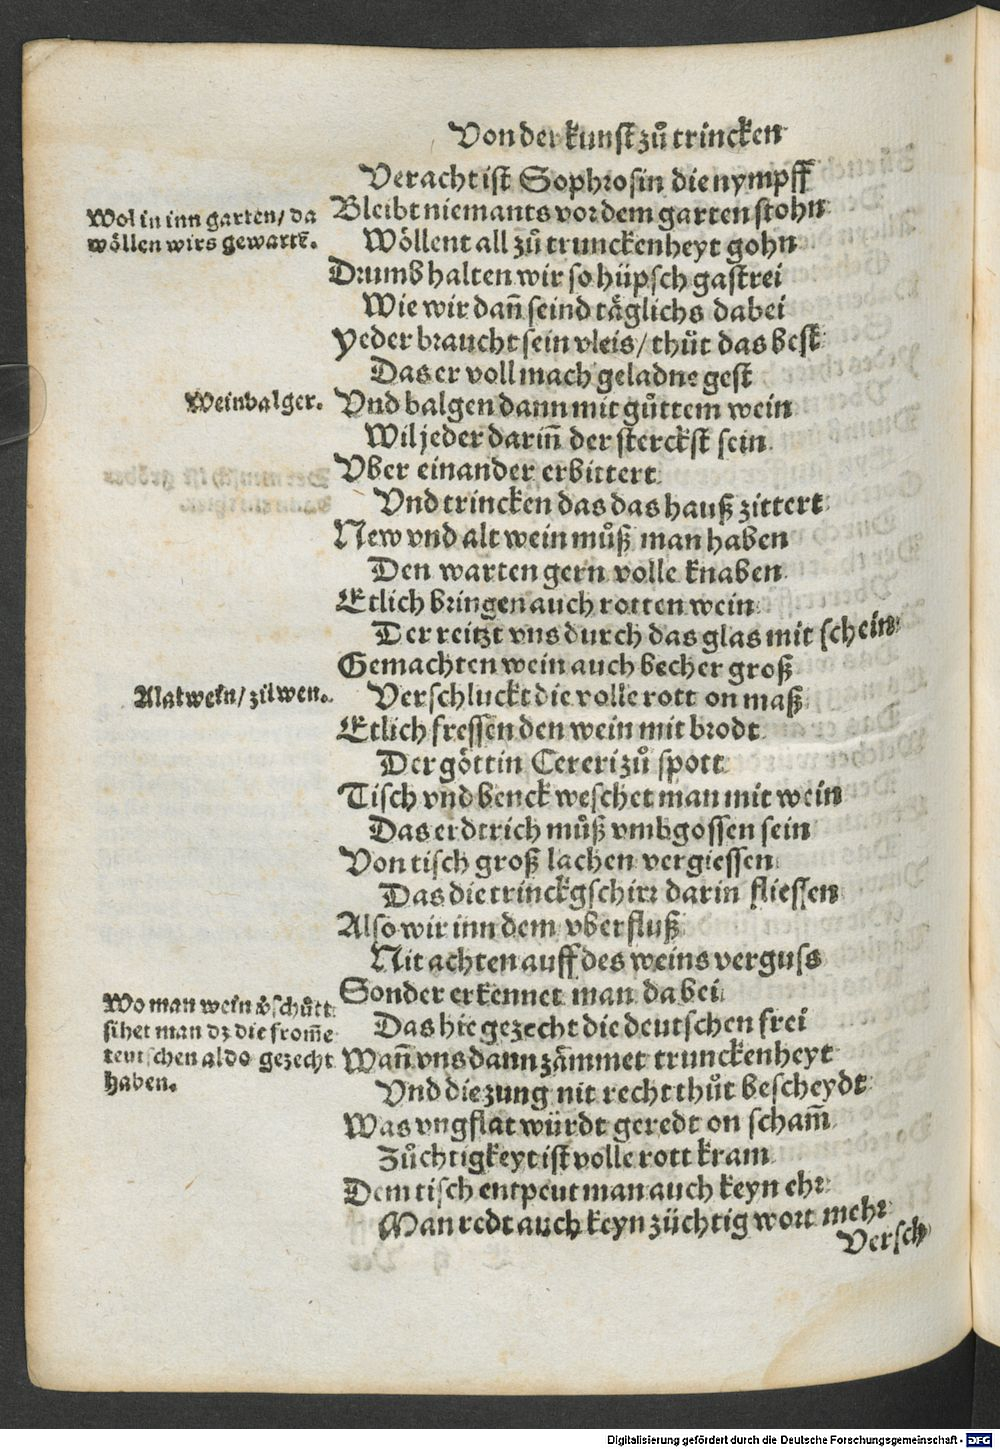 Von der kunst zuͦ trincken
Veracht ist Sophrosin die nympff
Wol in inn garten/ da
wöllen wirs gewartē.
Bleibt niemants vor dem garten stohn
Wöllent all zuͦ trunckenheyt gohn
Drumb halten wir so hüpsch gastrei
Wie wir dañ seind täglichs dabei
Yeder braucht sein vleis/ thüt das best
Das er voll mach geladne gest
Weinbalger.
Vnd balgen dann mit guͦttem wein
Wil jeder dariñ der sterckst sein
Vber einander erbittert
Vnd trincken das das hauß zittert
New vnd alt wein muͦß man haben
Den warten gern volle knaben
Etlich bringen auch rotten wein
Der reitzt vns durch das glas mit schein
Gemachten wein auch becher groß
Alatwein/ zilwen.
Verschluckt die volle rott on maß
Etlich fressen den wein mit brodt
Der göttin Cereri zuͦ spott
Tisch vnd benck weschet man mit wein
Das erdtrich muͦß vmbgossen sein
Von tisch groß lachen vergiessen
Das die trinckgschirr darin fliessen
Also wir inn dem vberfluß
Nit achten auff des weins verguss
Wo man wein v̊schütt
sihet man dz die from̄e
teutschen aldo gezecht
haben.
Sonder erkennet man dabei
Das hie gezecht die deutschen frei
Wañ vns dann zämmet trunckenheyt
Vnd die zung nit recht thuͦt bescheydt
Was vngflat würdt geredt on scham̄
Zuͦchtigkeyt ist volle rott kram
Dem tisch entpeut man auch keyn ehr
Man redt auch keyn züchtig wort mehr
Versch
Digitalisierung gefördert durch die Deutsche Forschungsgemeinschaft - DFG